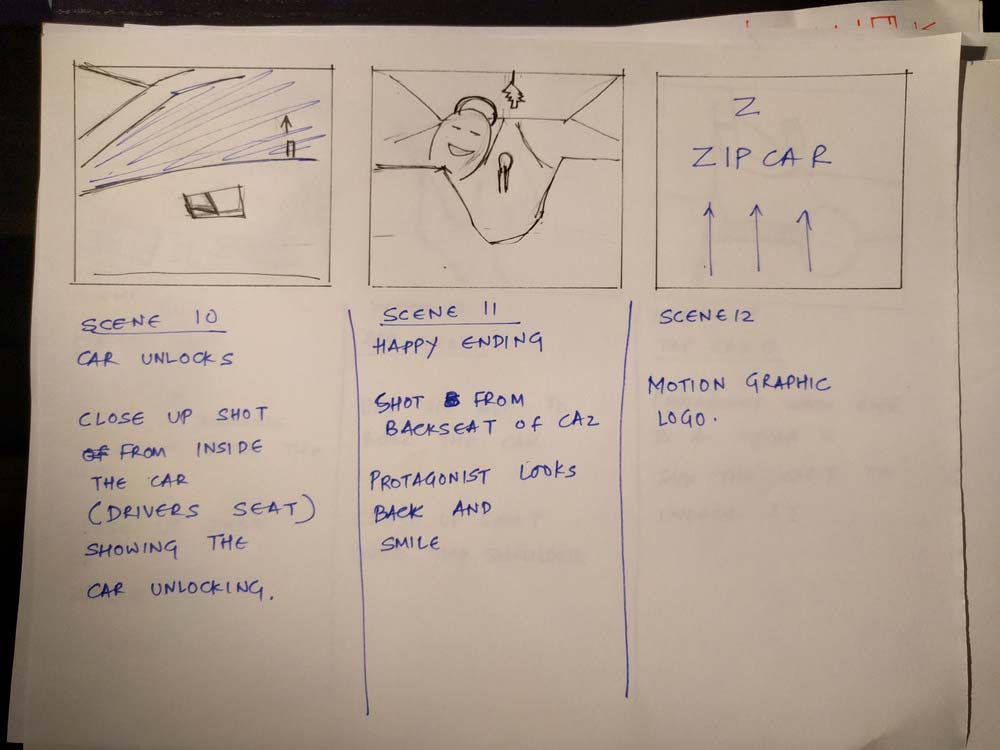 SCENE 10
CAR UNLOCKS
CLOSE UP SHOT
OF FROM INSIDE
THE CAR
(DRIVERS SEAT)
SHOWING THE
CAR UNLOCKING.
SCENE 11
HAPPY ENDING
SHOT FROM
BACKSEAT OF CAR
PROTAGONIST LOOKS
BACK AND
SMILE
Z
ZIPCAR
SCENE 12
MOTION GRAPHIC
LOGO.